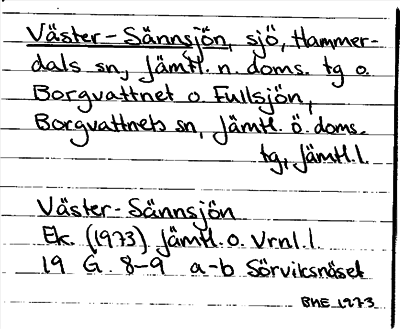 Väster-Sännsjön, sjö, Hammer-
dals sn, Jämtl. n. doms. tg o.
Borgvattnet o. Fullsjön,
Borgvattnets sn, Jämtl. ö. doms.
tg, Jämtl. l.
Väster-Sännsjön
Ek. (1973) Jämtl. o. Vrnl. l.
19 G. 8-9 a-b Sörviksnäset
BHE 1973